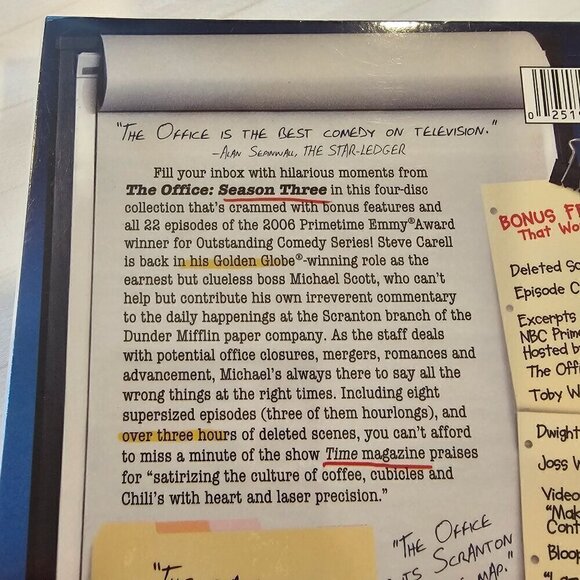 "THE OFFICE IS THE BEST COMEDY ON TELEVISION."
-ALAN SEPINWALL, THE STAR-LEDGER
Fill your inbox with hilarious moments from
The Office: Season Three in this four-disc
collection that's crammed with bonus features and
all 22 episodes of the 2006 Primetime Emmy® Award
winner for Outstanding Comedy Series! Steve Carell
is back in his Golden Globe®-winning role as the
earnest but clueless boss Michael Scott, who can't
help but contribute his own irreverent commentary
to the daily happenings at the Scranton branch of the
Dunder Mifflin paper company. As the staff deals
with potential office closures, mergers, romances and
advancement, Michael's always there to say all the
wrong things at the right times. Including eight
supersized episodes (three of them hourlongs), and
over three hours of deleted scenes, you can't afford
to miss a minute of the show Time magazine praises
for "satirizing the culture of coffee, cubicles and
Chili's with heart and laser precision."
"THE OFFICE
SCRANTON
MAP."
0 251
BONUS
That
Deleted
Episode
Excerpts
NBC
Hosted
The
Toby
Dwight
Joss
Video